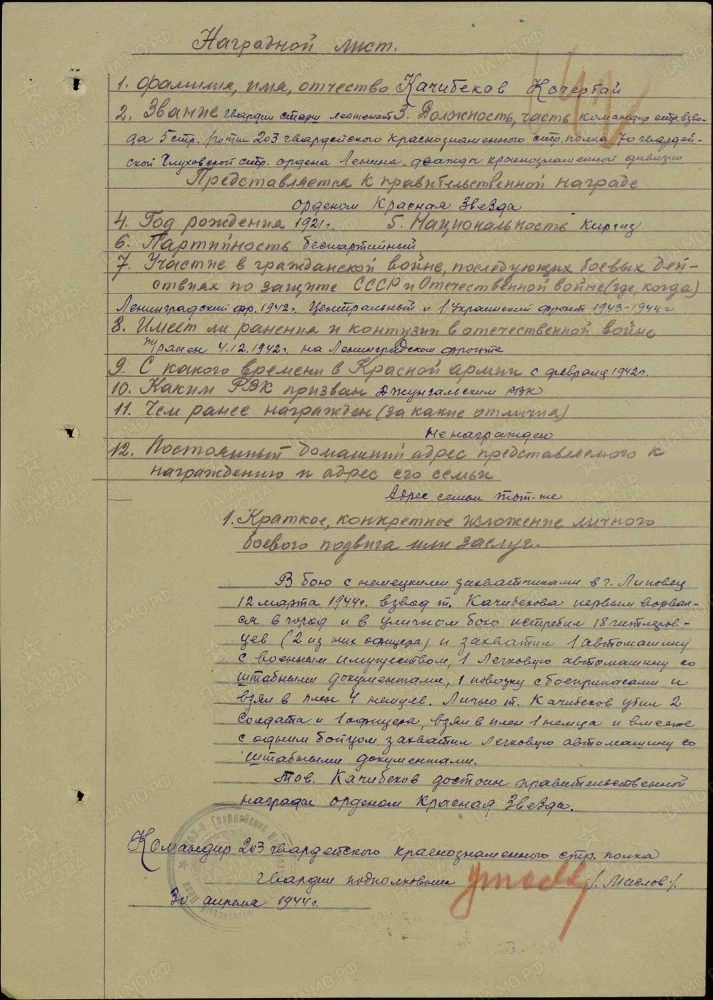 Наградной лист.
1. Фамилия, имя, отчество Качибеков Кочербай
2. Звание гвардии старш. лейтенант 3. Должность, часть командир стр. взво-
да 5 стр. роты 203 гвардейского краснознаменного стр. полка 70 гвардей-
ской Глуховской стр. ордена Ленина, дважды краснознаменной дивизии
Представляется к правительственной награде
орденом Красная Звезда
4. Год рождения 1921г. 5. Национальность Киргиз
6. Партийность беспартийный
7. Участие в гражданской войне, последующих боевых дей-
ствиях по защите СССР и Отечественной войне (где, когда)
Ленинградский фр. 1942г. Центральный и 1 Украинский фронт 1943-1944г
8. Имеет ли ранения и контузии в отечественной войне
т/ранен 4.12.1942г. на Ленинградском фронте
9. С какого времени в Красной армии с февраля 1942г.
10. Каким РВК призван Джумгальским РВК
11. Чем ранее награжден (за какие отличия)
Не награжден
12. Постоянный домашний адрес представляемого к
награждению и адрес его семьи
Адрес семьи тот-же
1. Краткое, конкретное изложение личного
боевого подвига или заслуг.
В бою с немецкими захватчиками в г. Липовец
12 марта 1944г. взвод т. Качибекова первым ворвал-
ся в город и в уличном бою истребил 18 гитлеров-
цев (2 из них офицера) и захватил 1 автомашину
с военным имуществом, 1 легковую автомашину со
штабными документами, 1 повозку с боеприпасами и
взял в плен 4 немцев. Лично т. Качибеков убил 2
солдата и 1 офицера, взял в плен 1 немца и вместе
с одним бойцом захватил легковую автомашину со
штабными документами.
Тов. Качибеков достоин правительственной
награды орденом Красная Звезда.
Командир 203 гвардейского краснознаменного стр. полка
гвардии подполковник /. Маслов ./
30 апреля 1944г.